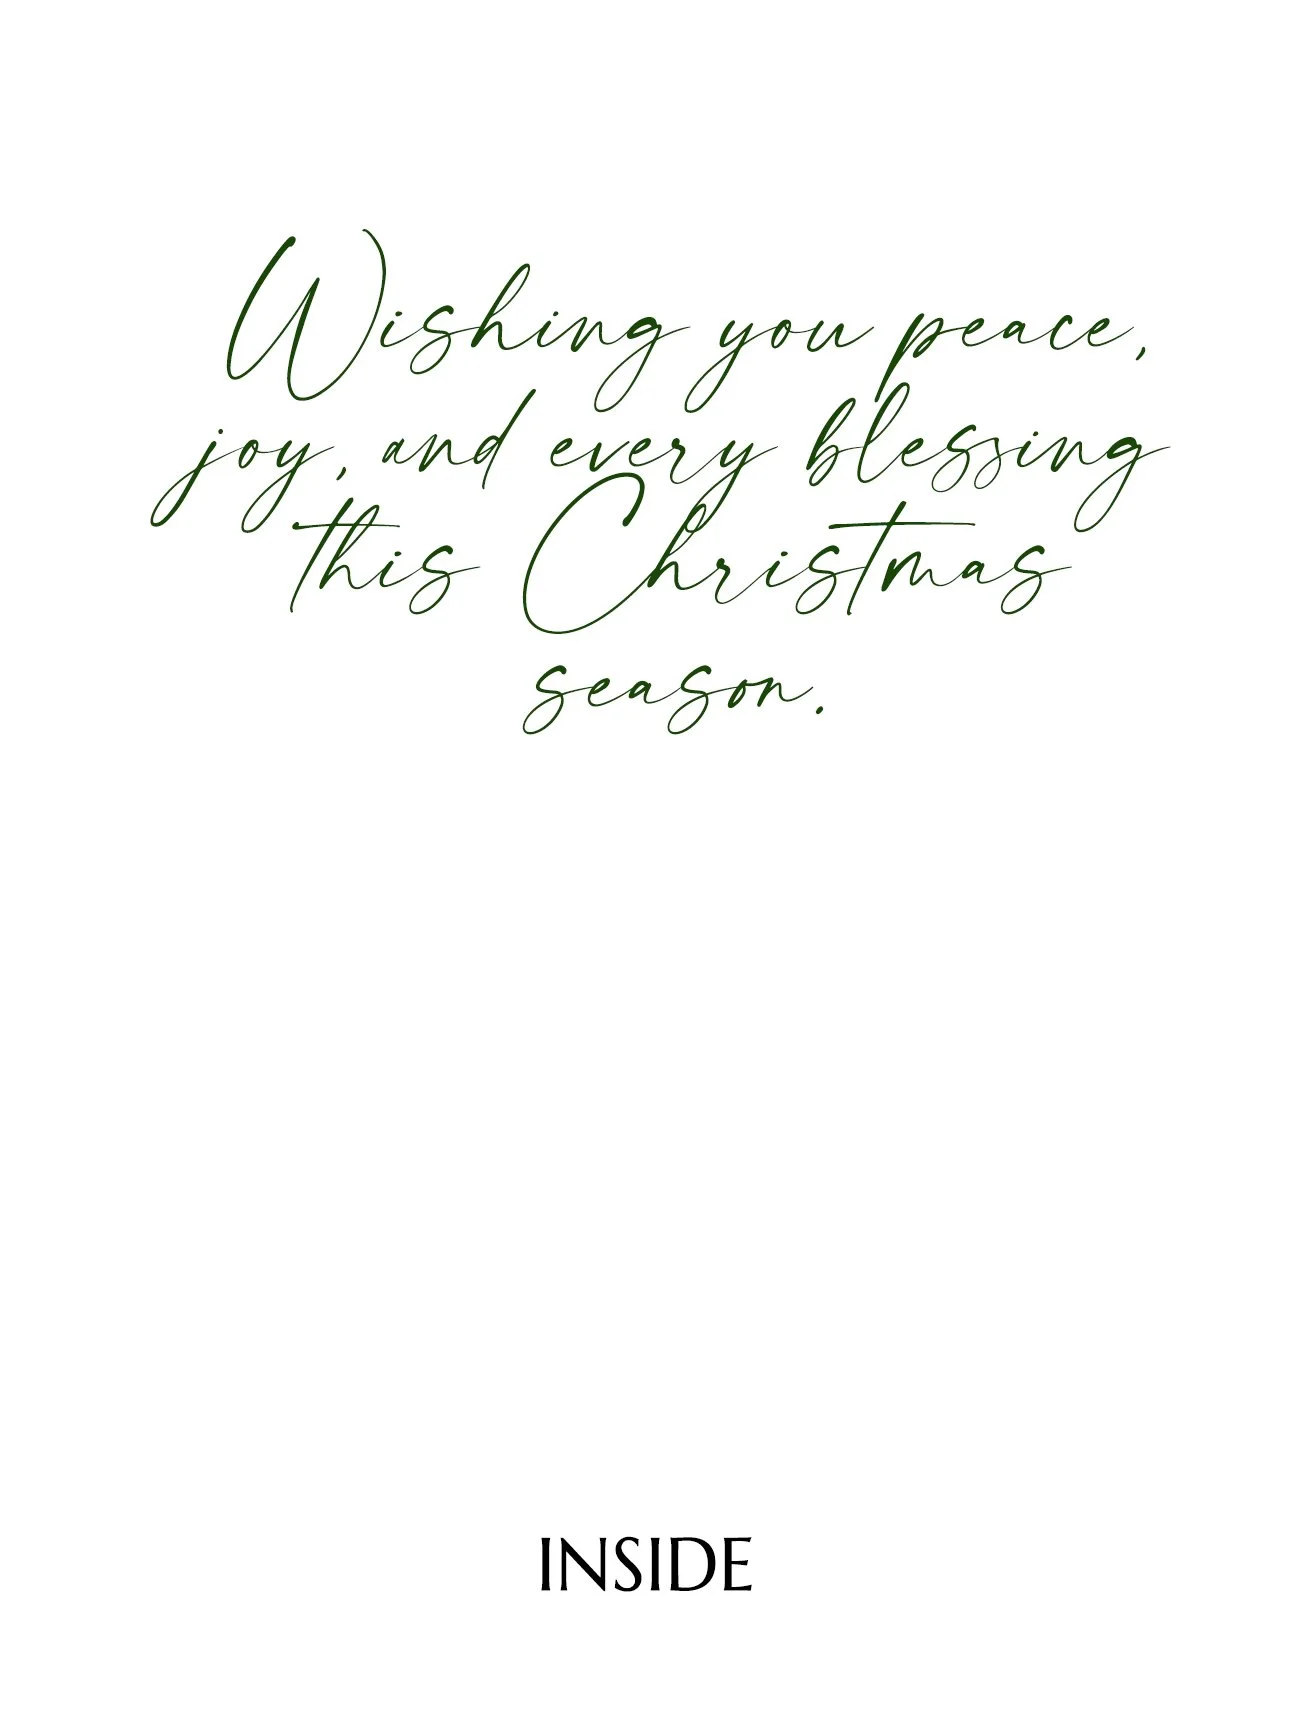 Wishing you peace,
joy, and every blessing
this Christmas
season.
INSIDE